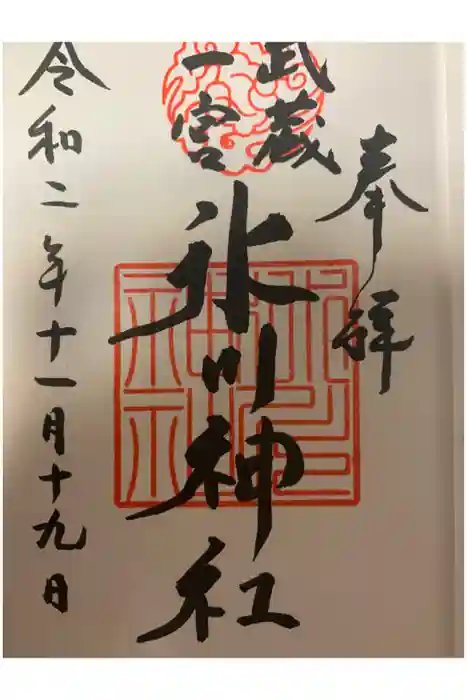 奉拝
武蔵
一宮
氷川神社
令和二年十一月十九日